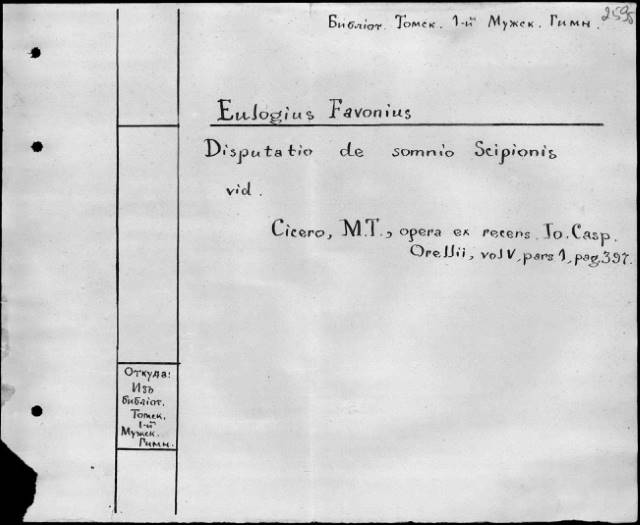 Библіот. Томск. 1-й Мужск. Гимн.
Eulogius Favonius
Disputatio de somnio Scipionis
vid.
Cicero, M.T., opera ex recens. Io. Casp.
Orellii, vol V, pars 1, pag. 397.
Откуда:
Изъ
библіот.
Томск.
1-й
Мужск.
Гимн.